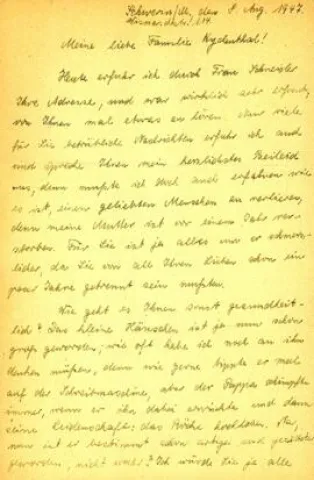 Schwerin/M., den 8. Aug. 1947.
Bismarckstr. 104.
Meine liebe Familie Rydenthal!
Heute erfuhr ich durch Frau Schreigler
Ihre Adresse, und war wirklich sehr erfreut,
von Ihnen mal etwas zu hören. Aber viele
für Sie betrübliche Nachrichten erfuhr ich auch
und spreche Ihnen mein herzlichstes Beileid
aus, denn mußte ich doch auch erfahren wie
es ist, einen geliebten Menschen zu verlieren,
denn meine Mutter ist vor einem Jahr ver-
storben. Für Sie ist ja alles nur so schmerz-
licher, da Sie von all Ihren Lieben schon ein
paar Jahre getrennt sein mußten.
Wie geht es Ihnen sonst gesundheit-
lich? Das kleine Hänschen ist ja nun schon
groß geworden; wie oft habe ich noch an ihn
denken müssen, denn wie gerne tippte er mal
auf der Schreibmaschine, aber der Pappa schimpfte
immer, wenn er ihn dabei erwischte und dann
seine Leidenschaft: das
nun ist er bestimmt schon artiger und
geworden, nicht wahr? Ich würde Sie ja alle